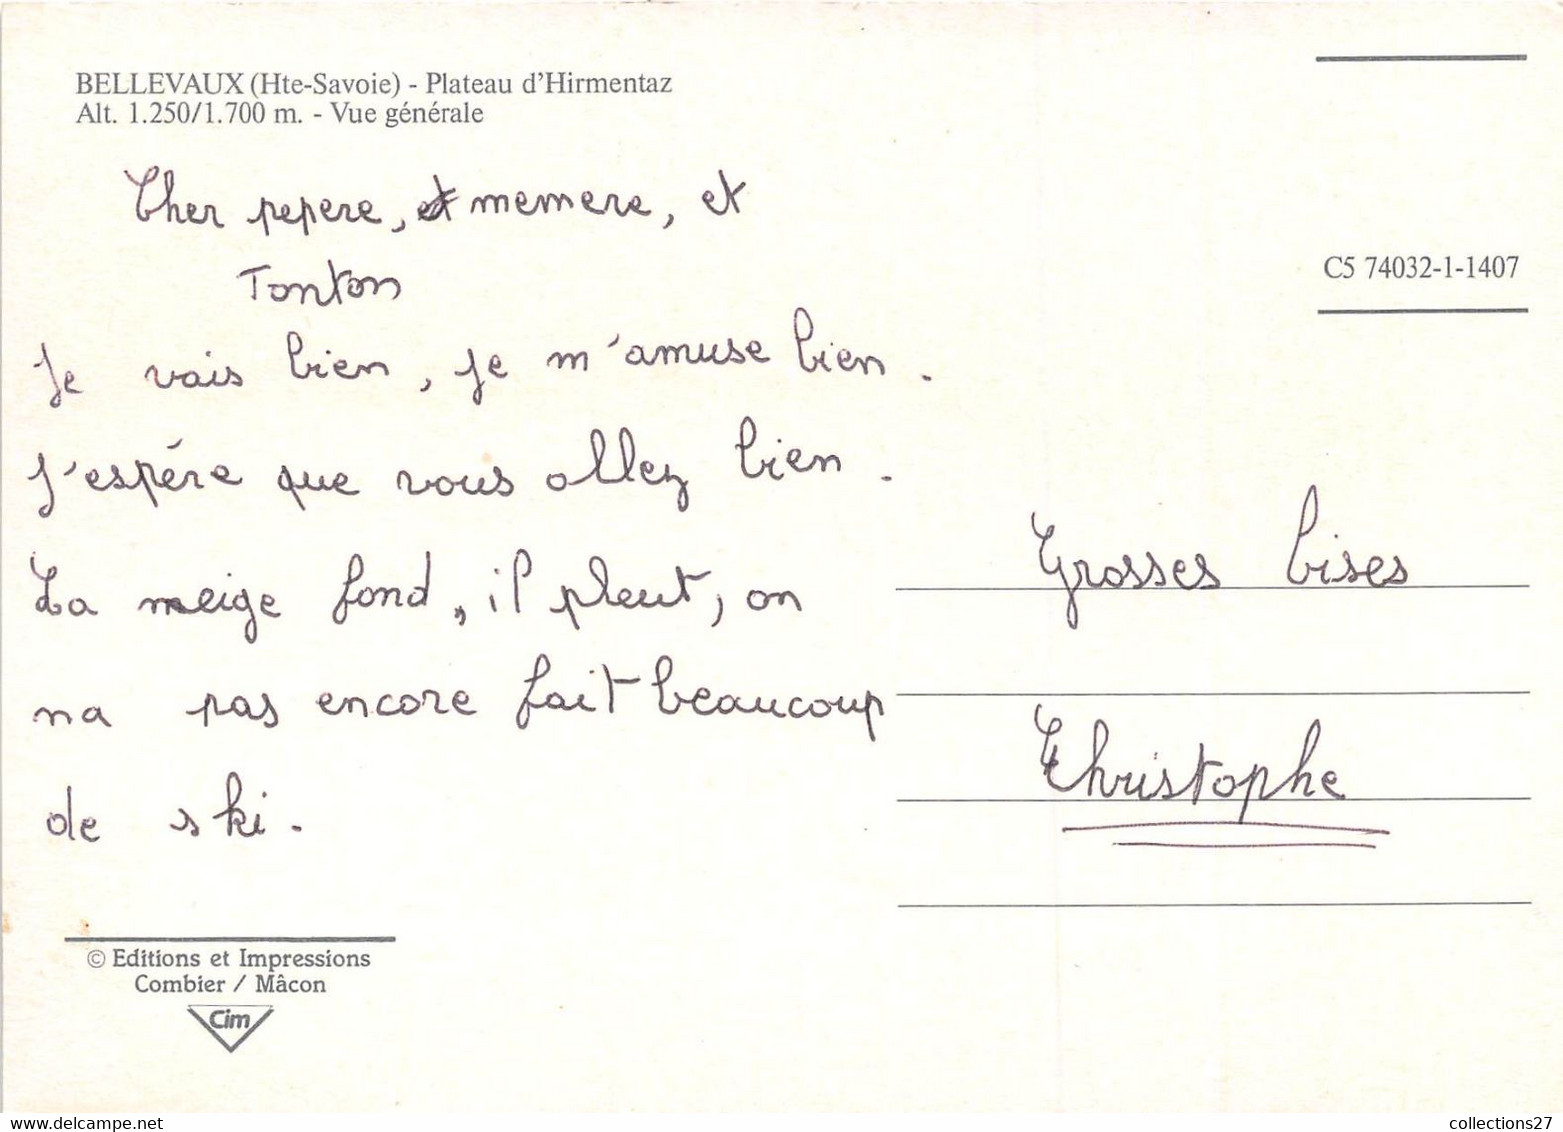 BELLEVAUX (Hte-Savoie) - Plateau d'Hirmentaz
Alt. 1.250/1.700 m. - Vue générale
C5 74032-1-1407
Cher pepere, et memere, et
Tonton
Je vais bien, je m'amuse bien.
J'espére que vous allez bien.
La neige fond, il pleut, on
na pas encore fait beaucoup
de ski.
Grosses bises
Christophe
© Editions et Impressions
Combier / Mâcon
Cim
www.delcampe.net
collections27